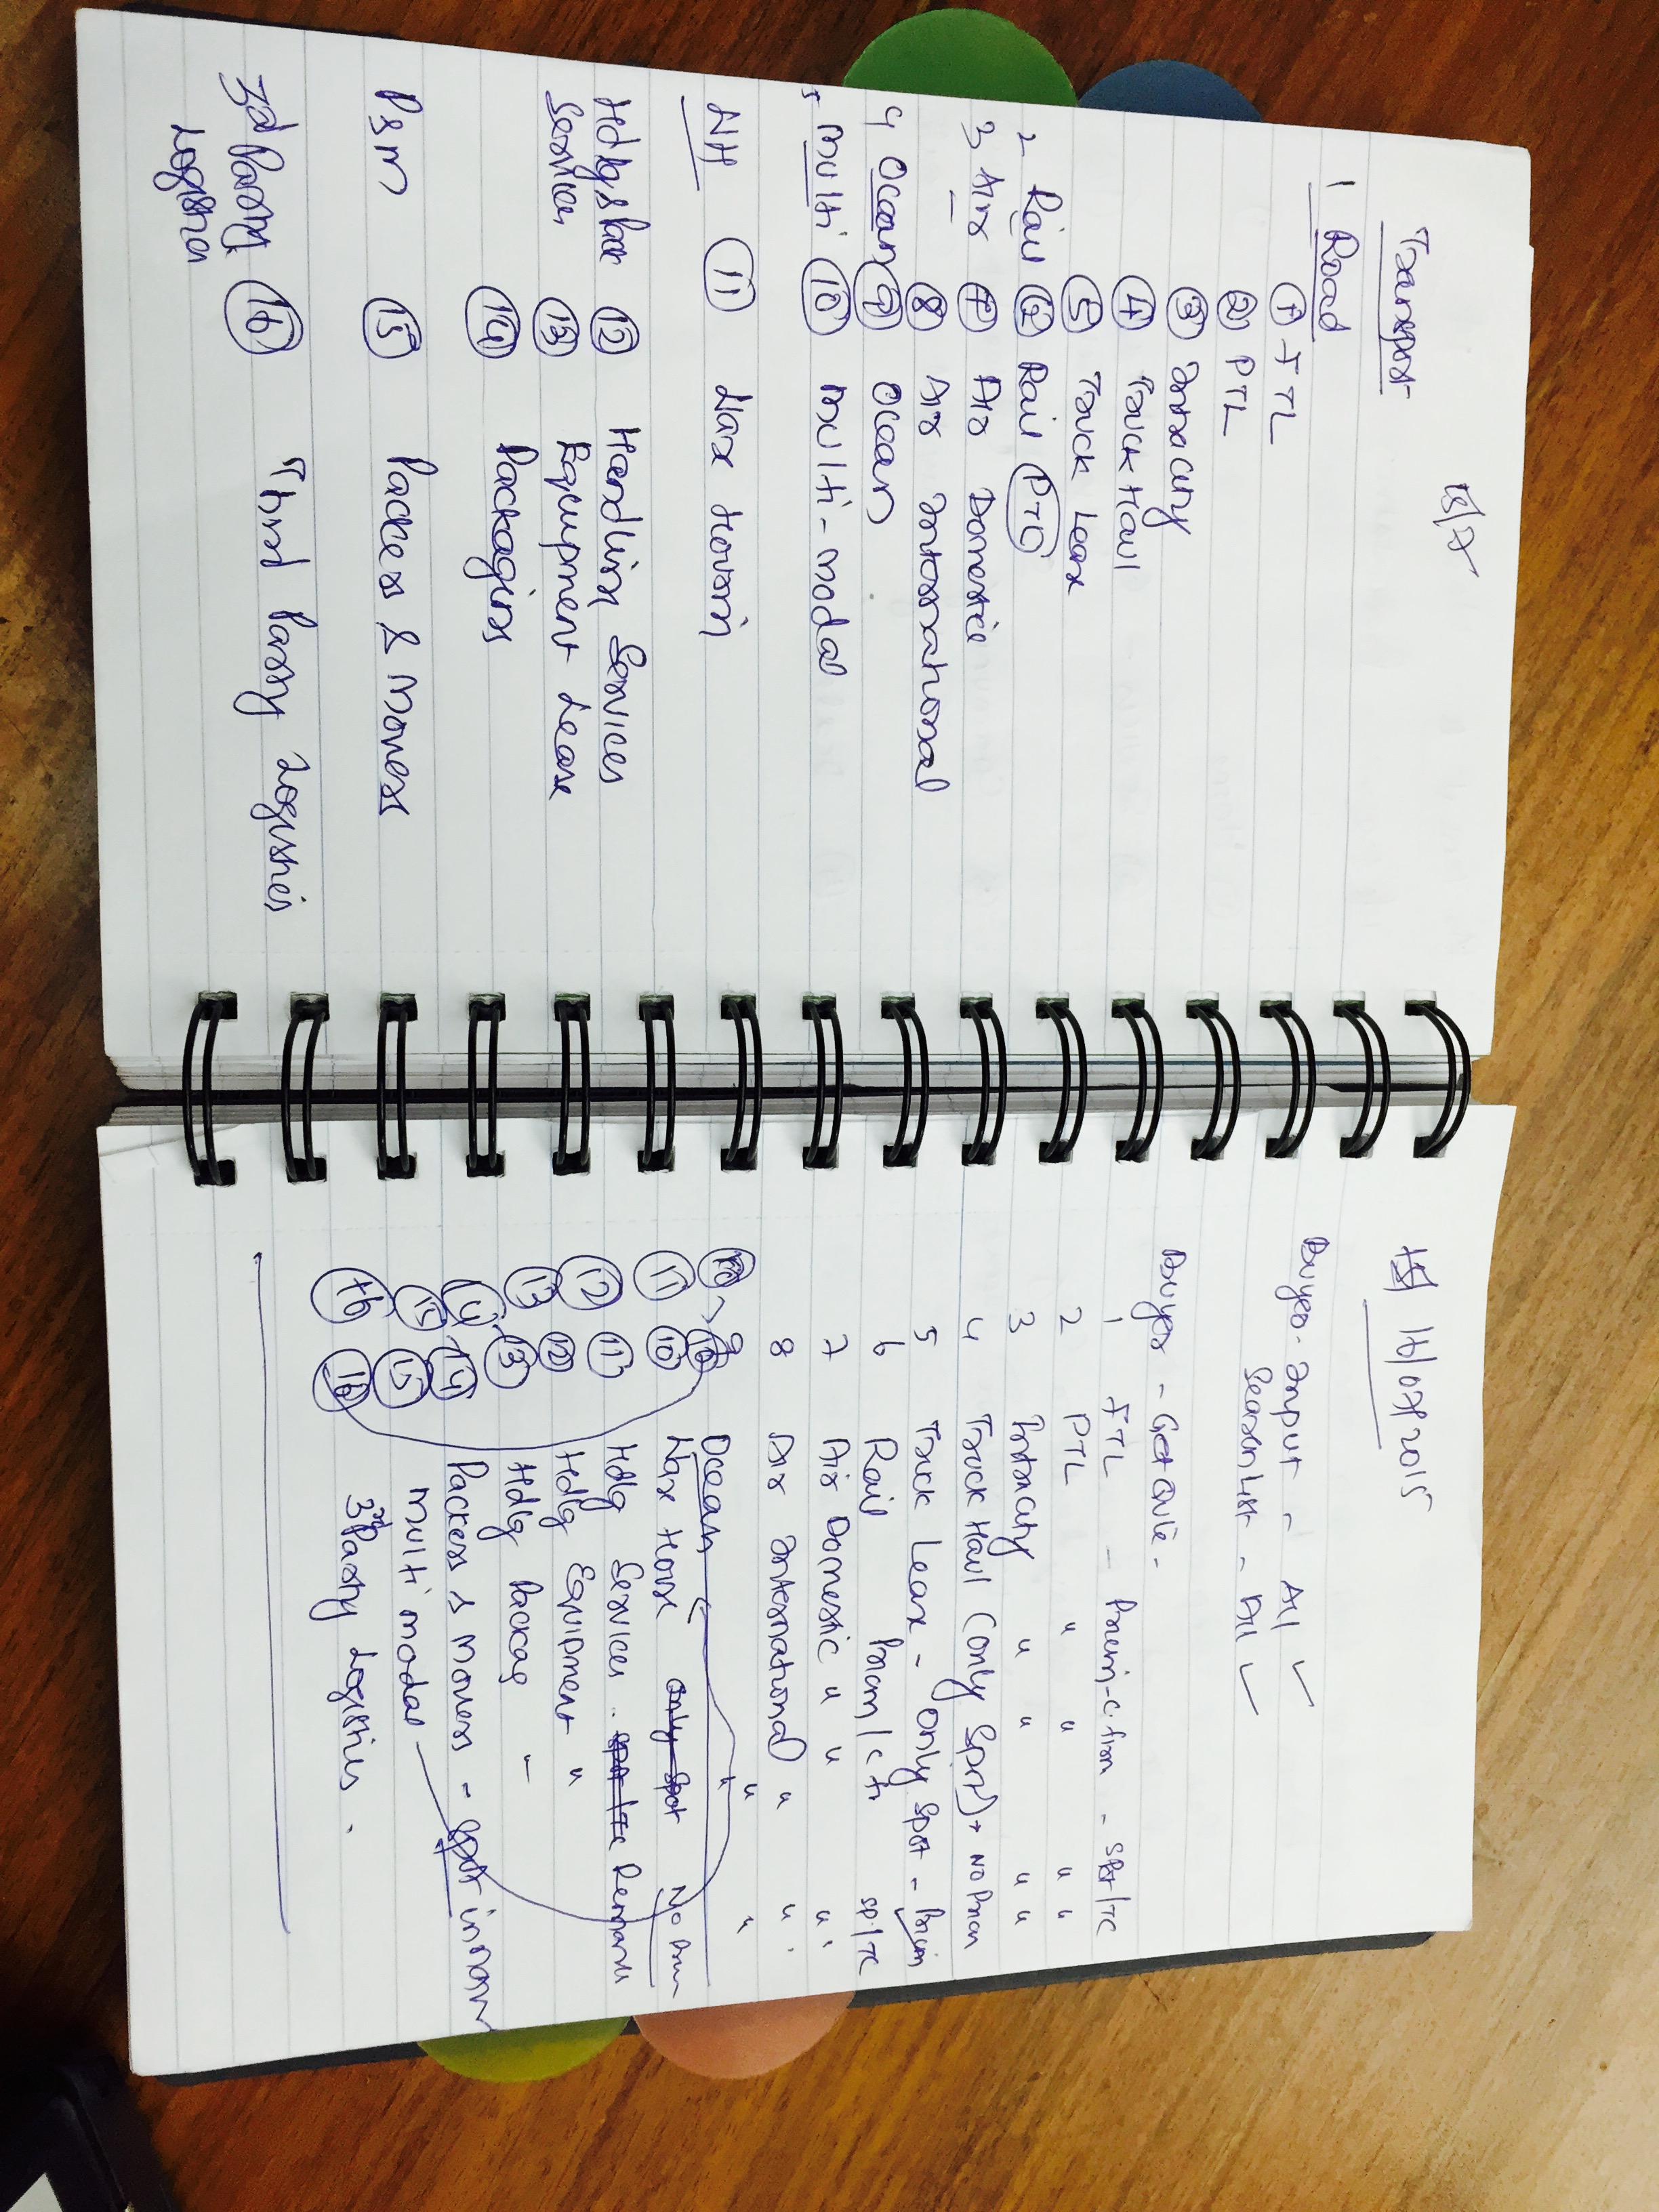 15/7
Transport
1 Road
① FTL
② PTL
③ Intracity
④ Truck Haul
⑤ Truck Lease
2 Rail ⑥ Rail PTC
3 Air ⑦ Air Domestic
⑧ Air International
4 Ocean ⑨ Ocean
5 Multi ⑩ Multi-modal
WH ⑪ Ware Housing
Hdlg & Pack ⑫ Handling Services
Services ⑬ Equipment Lease
⑭ Packaging
P&M ⑮ Packers & Movers
3d Party ⑯ Third Party Logistics
Logistics
16/07/2015
Buyer - Input - All ✓
Search List - All ✓
Buyer - Get Quote -
1 FTL - - Spot/TC
2 PTL " " " "
3 Intracity " " " "
4 Truck Haul (Only Spot) + No
5 Truck Lease - Only Spot -
6 Rail SP/TC
7 Air Domestic " " " "
8 Air International " " "
9 Ocean " " "
⑪ ⑩ Ware House Only Spot No
⑫ ⑪ Hdlg Services
⑬ ⑫ Hdlg Equipment "
⑭ ⑬ Hdlg Packag "
⑮ ⑭ Packers & Movers - Spot
⑮ Multi modal
⑯ ⑯ 3rd Party Logistics.